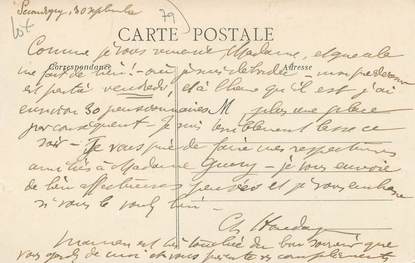 Secondigny, 30 septembre
79
CARTE POSTALE
Correspondance Adresse
Comme je vous remercie Madame, et que cela
me fait de bien! - oui je suis débordée -
est partie vendredi, et à l'heure qu'il est j'ai
environ 30 pensionnaires plus une place
par conséquent - Je suis terriblement lasse ce
soir - Je vous prie de faire mes respectueuses
amitiés à Madame - je vous envoie
de bien affectueuses pensées et je vous embrasse
si vous le voulez bien -
Ch
maman est très touchée du bon souvenir que
vous gardez de moi et vous présente ses compliments